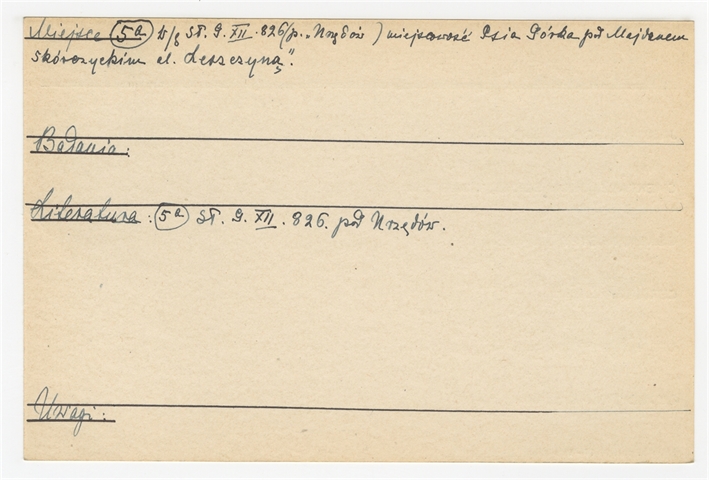 Miejsce (5a) w/g Sł. G. XII. 826 (p. „Urzędów”) miejscowość Psia Górka pod Majdanem
skórczyckim al. Leszczyną".
Badania:
Literatura: (5a) Sł. G. XII. 826. pod Urzędów.
Uwagi: